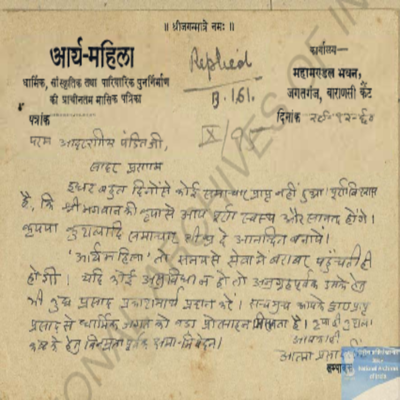 ॥ श्रीजगन्मात्रे नमः ॥
आर्य-महिला
धार्मिक, सांस्कृतिक तथा पारिवारिक पुनर्निर्माण
की प्राचीनतम मासिक पत्रिका
Replied
B.161.
कार्यालय—
महामण्डल भवन,
जगतगंज, वाराणसी कैंट
पत्रांक
दिनांक २८-१२-६०
परम आदरणीय पंडित जी,
सादर प्रणाम
इधर बहुत दिनों से कोई समाचार प्राप्त नहीं हुआ। पूर्ण विश्वास
है, कि श्री भगवान की कृपा से आप पूर्ण स्वस्थ और सानन्द होंगे।
कृपया कुशलादि समाचार शीघ्र दे आनन्दित बनायें।
'आर्य महिला' तो सेवा में बराबर पहुंचती ही
होगी। यदि कोई असुविधा न हो तो अनुग्रहपूर्वक उसके हेतु
भी कुछ प्रसाद प्रकाशनार्थ प्रदान करें। आपके द्वारा प्राप्त
प्रसाद से धार्मिक जगत को बड़ा प्रोत्साहन मिलता है। कृपा
कष्ट के हेतु विनम्रता पूर्वक क्षमा-निवेदन।
आत्मा प्रसाद
सम्पादक